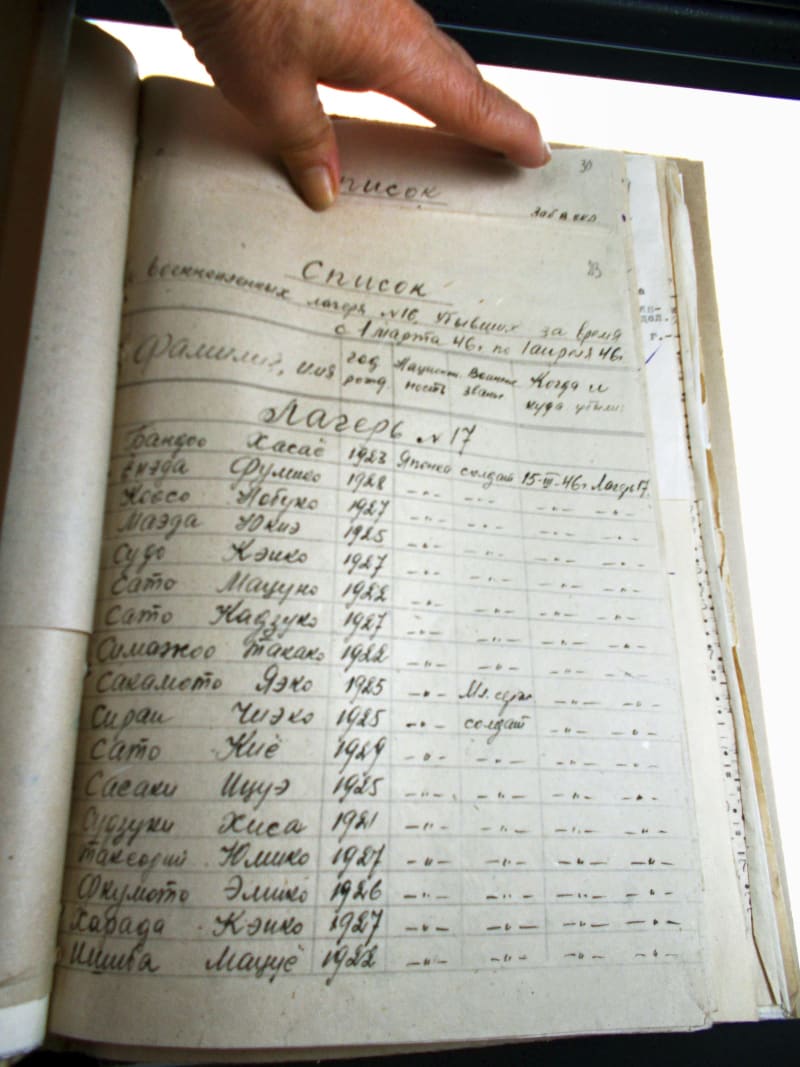 30
писок
Список
военнопленных лагеря №16, убывших за время
с 1 марта 46 г по 1 апреля 46 г
Фамилия, имя год рожд. Национ ность Военное звание Когда и куда убыли
Лагерь №17
Хасаё 1923 Японка солдат 15-III-46 г Лагерь 17
Фумико 1928 -"- -"- -"- -"-
Нобуко 1927 -"- -"- -"- -"-
Маэда Юкиэ 1925 -"- -"- -"- -"-
Судо Кэико 1927 -"- -"- -"- -"-
Сато Мацуно 1922 -"- -"- -"- -"-
Сато Кадзуко 1927 -"- -"- -"- -"-
Симажоо Такако 1922 -"- -"- -"- -"-
Сакамото Яэко 1925 -"- Мл. серж -"- -"-
Сираи Чиэко 1925 -"- солдат -"- -"-
Сато Киё 1929 -"- -"- -"- -"-
Сасаки Ицуэ 1925 -"- -"- -"- -"-
Судзуки Хиса 1921 -"- -"- -"- -"-
Юмико 1927 -"- -"- -"- -"-
Окумото Эмико 1926 -"- -"- -"- -"-
Харада Кэико 1927 -"- -"- -"- -"-
Мацуё 1922 -"- -"- -"- -"-